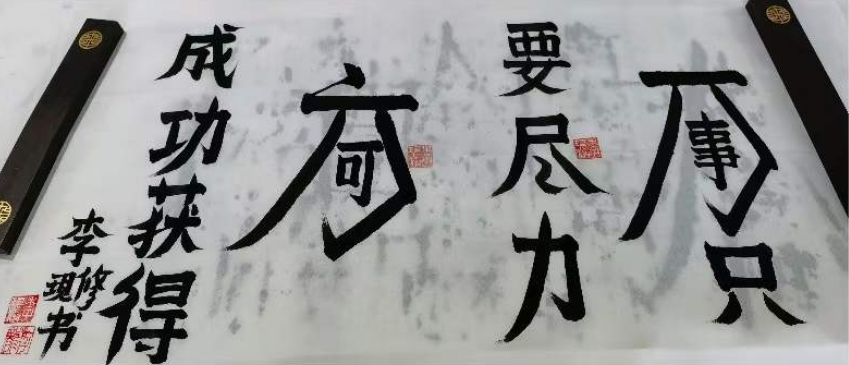 万事只
要尽力
方可
成功获得
李修书